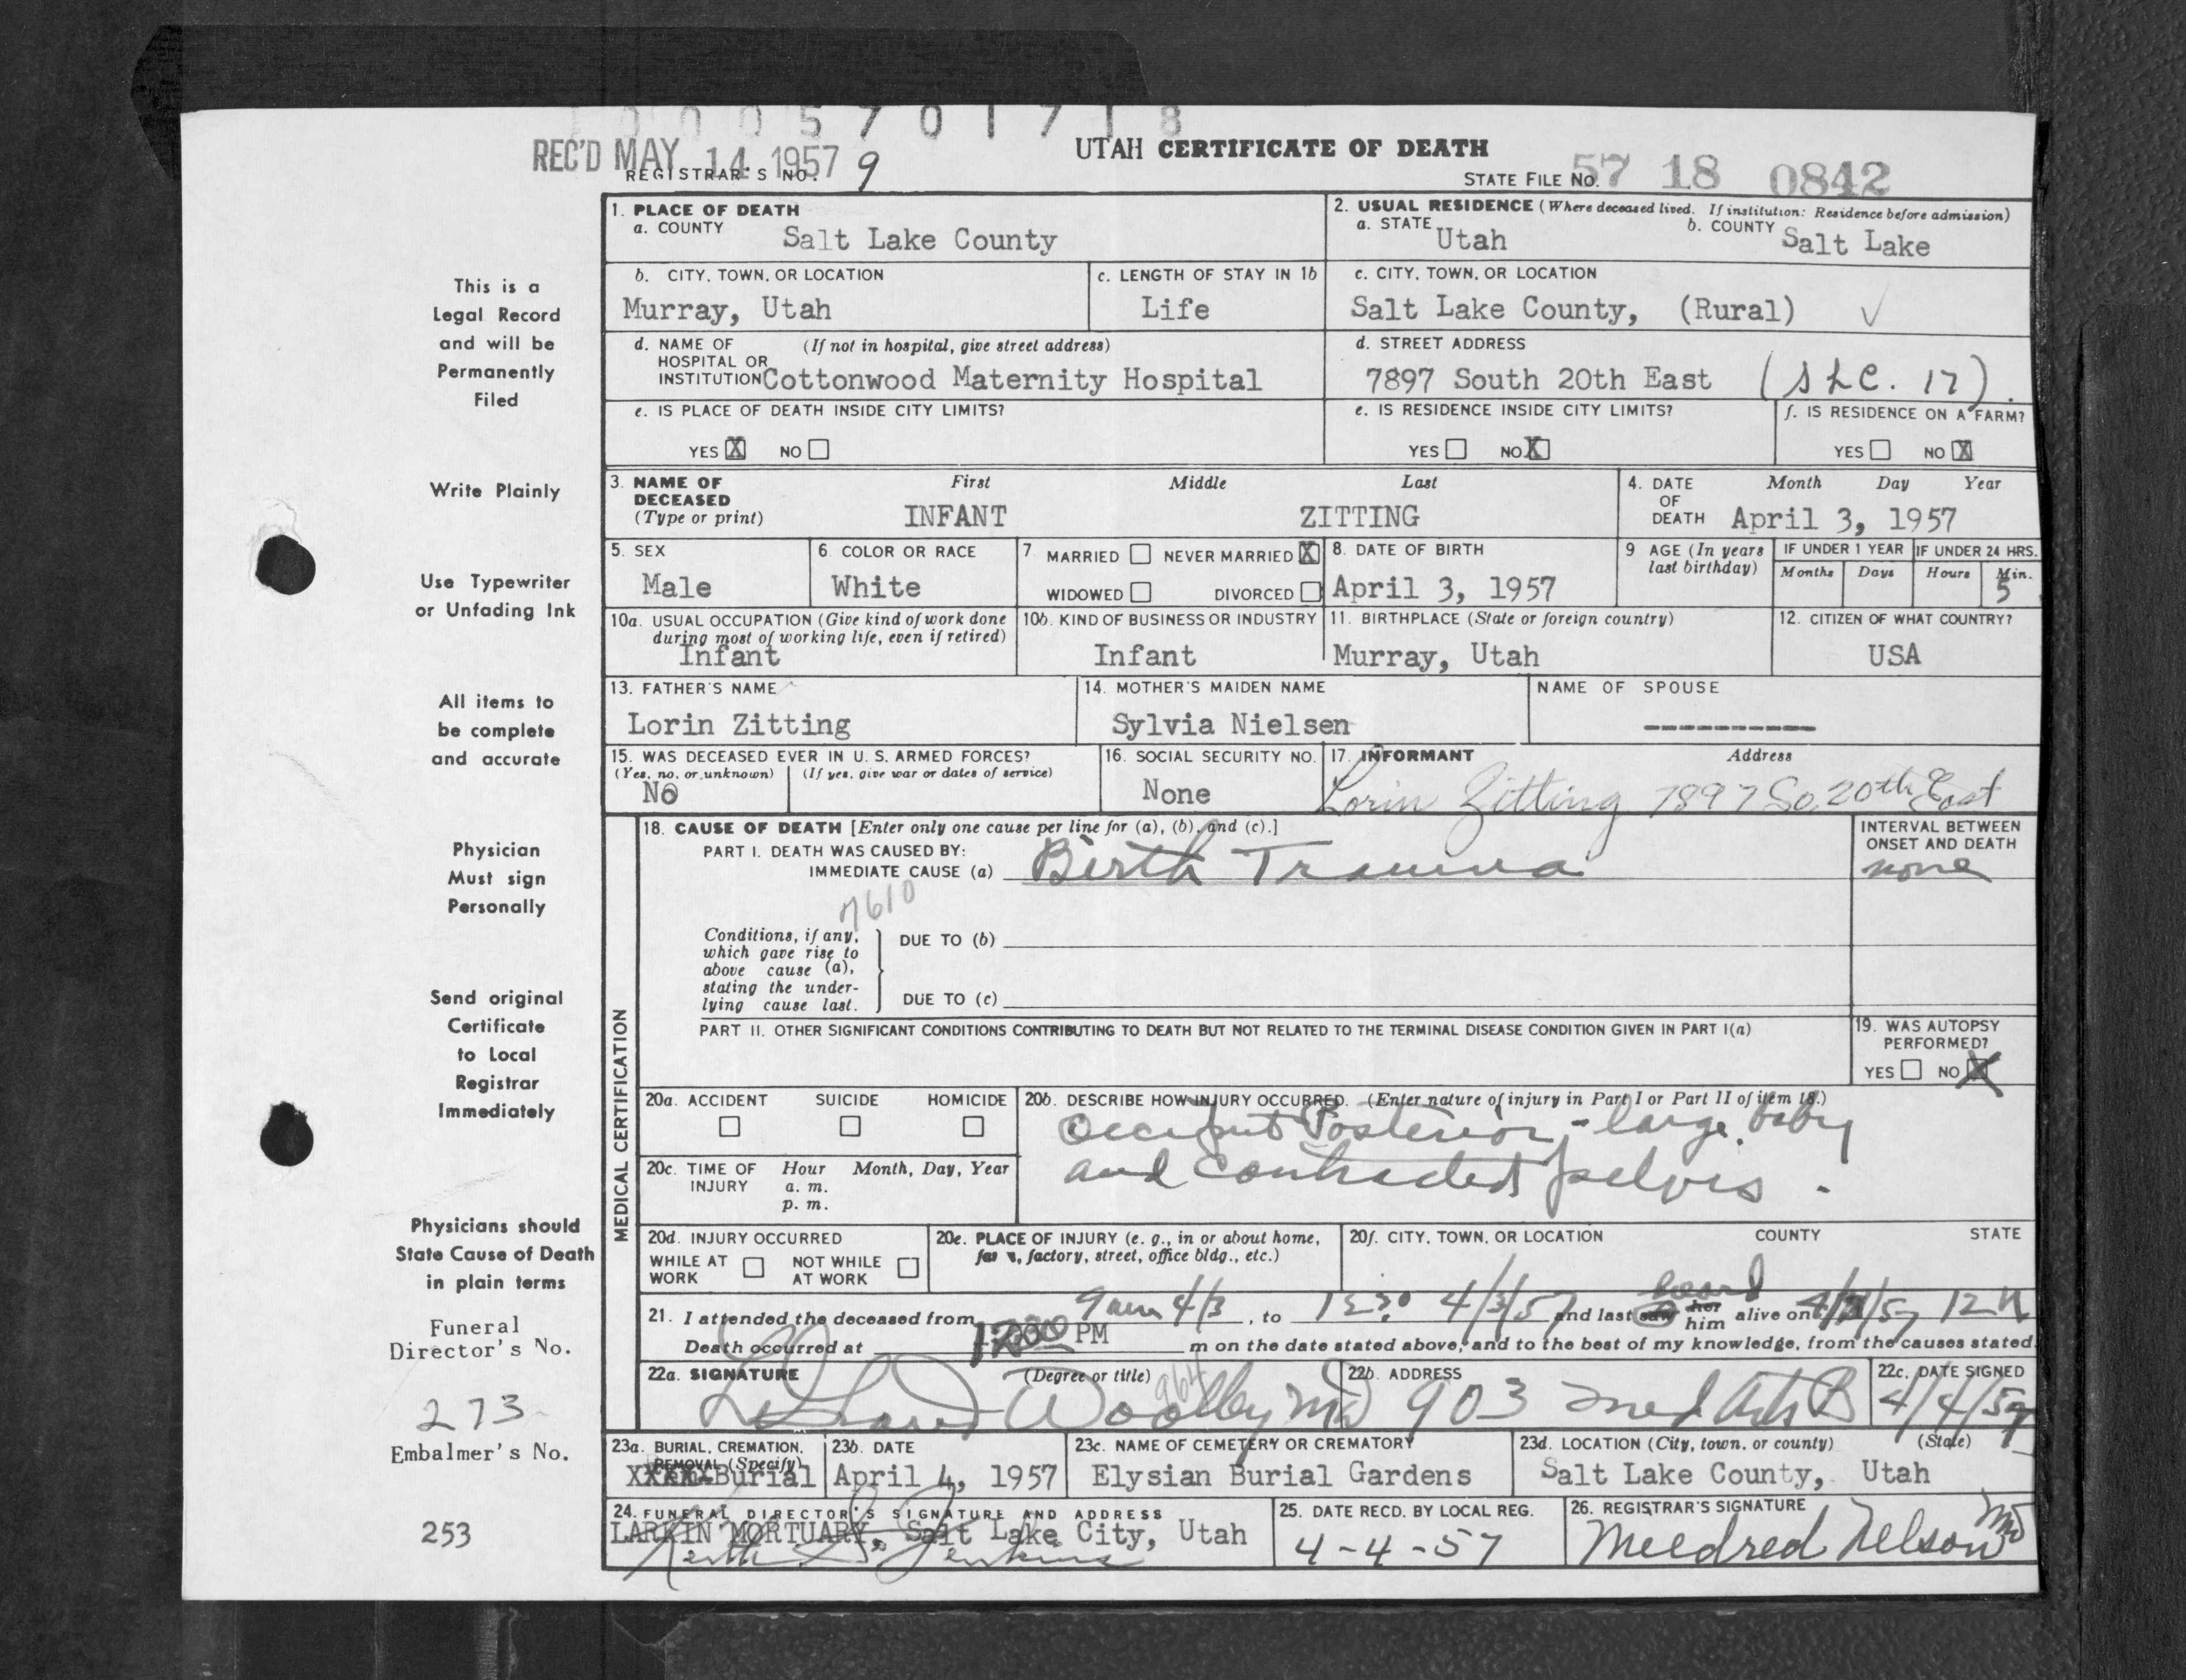 0 0 0 5 7 0 1 7 1 8
REC'D MAY 14 1957
REGISTRAR'S NO. 9
UTAH CERTIFICATE OF DEATH
STATE FILE NO. 57 18 0842
This is a
Legal Record
and will be
Permanently
Filed
Write Plainly
Use Typewriter
or Unfading Ink
All items to
be complete
and accurate
Physician
Must sign
Personally
Send original
Certificate
to Local
Registrar
Immediately
Physicians should
State Cause of Death
in plain terms
Funeral
Director's No.
273
Embalmer's No.
253
1. PLACE OF DEATH
a. COUNTY Salt Lake County
2. USUAL RESIDENCE (Where deceased lived. If institution: Residence before admission)
a. STATE Utah b. COUNTY Salt Lake
b. CITY, TOWN, OR LOCATION
Murray, Utah
c. LENGTH OF STAY IN 1b
Life
c. CITY, TOWN, OR LOCATION
Salt Lake County, (Rural) ✓
d. NAME OF (If not in hospital, give street address)
HOSPITAL OR
INSTITUTION Cottonwood Maternity Hospital
d. STREET ADDRESS
7897 South 20th East (SLC. 17).
e. IS PLACE OF DEATH INSIDE CITY LIMITS?
YES X NO
e. IS RESIDENCE INSIDE CITY LIMITS?
YES NO X
f. IS RESIDENCE ON A FARM?
YES NO X
3. NAME OF DECEASED (Type or print)
First Middle Last
INFANT ZITTING
4. DATE OF DEATH Month Day Year
April 3, 1957
5. SEX
Male
6 COLOR OR RACE
White
7 MARRIED NEVER MARRIED X
WIDOWED DIVORCED
8. DATE OF BIRTH
April 3, 1957
9 AGE (In years last birthday)
IF UNDER 1 YEAR IF UNDER 24 HRS.
Months Days Hours Min.
5
10a. USUAL OCCUPATION (Give kind of work done
during most of working life, even if retired)
Infant
10b. KIND OF BUSINESS OR INDUSTRY
Infant
11. BIRTHPLACE (State or foreign country)
Murray, Utah
12. CITIZEN OF WHAT COUNTRY?
USA
13. FATHER'S NAME
Lorin Zitting
14. MOTHER'S MAIDEN NAME
Sylvia Nielsen
NAME OF SPOUSE
----------
15. WAS DECEASED EVER IN U. S. ARMED FORCES?
(Yes, no, or unknown) (If yes, give war or dates of service)
No
16. SOCIAL SECURITY NO.
None
17. INFORMANT Address
Lorin Zitting 7897 So. 20th East
MEDICAL CERTIFICATION
18. CAUSE OF DEATH [Enter only one cause per line for (a), (b), and (c).]
PART I. DEATH WAS CAUSED BY:
IMMEDIATE CAUSE (a) Birth Trauma
7610
INTERVAL BETWEEN
ONSET AND DEATH
none
Conditions, if any,
which gave rise to
above cause (a),
stating the under-
lying cause last.
DUE TO (b)
DUE TO (c)
PART II. OTHER SIGNIFICANT CONDITIONS CONTRIBUTING TO DEATH BUT NOT RELATED TO THE TERMINAL DISEASE CONDITION GIVEN IN PART I(a)
19. WAS AUTOPSY
PERFORMED?
YES NO X
20a. ACCIDENT SUICIDE HOMICIDE
20b. DESCRIBE HOW INJURY OCCURRED. (Enter nature of injury in Part I or Part II of item 18.)
Occiput Posterior, - large baby
and contracted pelvis.
20c. TIME OF INJURY Hour Month, Day, Year
a. m.
p. m.
20d. INJURY OCCURRED
WHILE AT WORK NOT WHILE AT WORK
20e. PLACE OF INJURY (e. g., in or about home,
farm, factory, street, office bldg., etc.)
20f. CITY, TOWN, OR LOCATION COUNTY STATE
21. I attended the deceased from 9 am 4/3, to 1230 4/3/57 and last saw heard her him alive on 4/3/57 12 N
Death occurred at 12:00 PM m on the date stated above, and to the best of my knowledge, from the causes stated.
22a. SIGNATURE (Degree or title)
Woolley MD
964
22b. ADDRESS
903 Med Arts B
22c. DATE SIGNED
4/4/57
23a. BURIAL, CREMATION,
REMOVAL (Specify)
XXXXX Burial
23b. DATE
April 4, 1957
23c. NAME OF CEMETERY OR CREMATORY
Elysian Burial Gardens
23d. LOCATION (City, town, or county) (State)
Salt Lake County, Utah
24. FUNERAL DIRECTOR'S SIGNATURE AND ADDRESS
LARKIN MORTUARY, Salt Lake City, Utah
Keith S. Jenkins
25. DATE RECD. BY LOCAL REG.
4-4-57
26. REGISTRAR'S SIGNATURE
Mildred Nelson MD